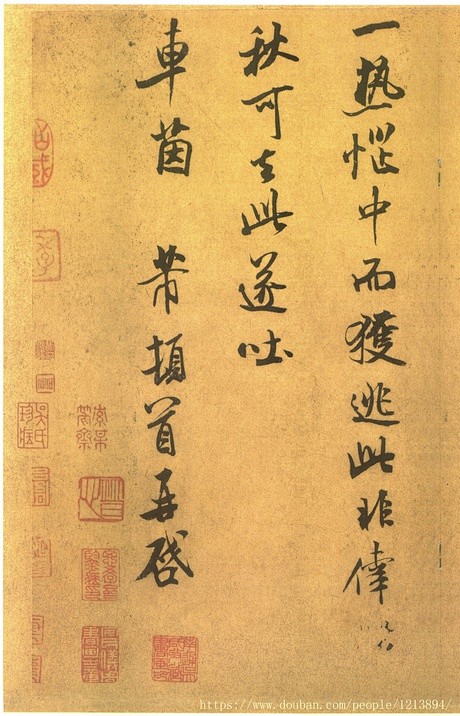 一热惱中而獲逃此非倖
秋可去此遂吐
車茵 芾頓首再啓
https://www.douban.com/people/1213894/